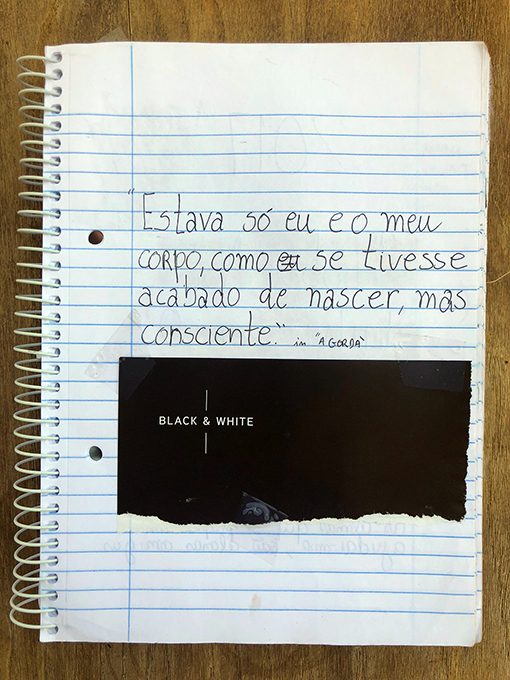 "Estava só eu e o meu
corpo, como se tivesse
acabado de nascer, mas
consciente." in "A GORDA"
BLACK & WHITE